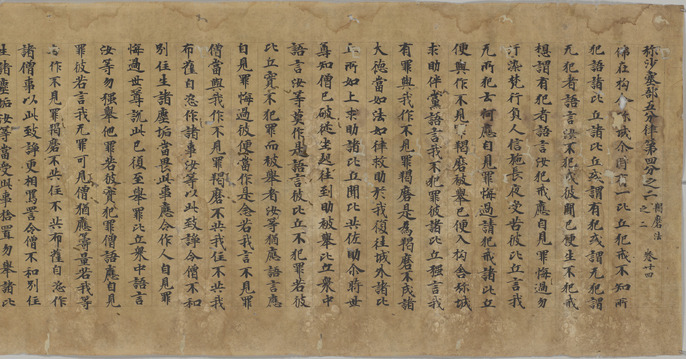 弥沙塞部五分律第四分之二 羯磨法 之二 卷十四
佛在拘舍弥城尒時有一比丘犯戒不知所
犯語諸比丘諸比丘或謂有犯或謂无犯謂
无犯者語言汝不犯戒彼聞已便生不犯戒
想謂有犯者語言汝犯戒應自見罪悔過勿
汙染梵行負人信施長夜受苦彼比丘言我
无所犯云何應自見罪悔過諸犯戒諸比丘
便與作不見罪羯磨被舉已便入拘舍弥城
求助伴黨語言我不犯罪彼諸比丘強言我
有罪與我作不見罪羯磨是為羯磨不成諸
大德當如法如律救助於我復往城外諸比
丘所如上求助諸比丘聞比共佐助尒時世
尊知僧已破從坐起往到助被舉比丘眾中
語言汝等莫作是語言彼比丘不犯罪若彼
比丘實不犯罪而被舉者汝等猶應語言應
自見罪悔過彼便當作是念若我言不見罪
僧當與我作不見罪羯磨不共我住不共我
布薩自恣作諸僧事以此致諍令僧不和
別住生諸塵垢當畏此事應令作人自見罪
悔過世尊說此已復至舉罪比丘眾中語言
汝等勿強舉他罪若彼實犯罪僧語應自見
罪彼若言我无罪可見僧猶應籌量若我等
與作不見罪羯磨不共住不共布薩自恣作
諸僧事以此致諍更相罵詈令僧不和別住
生諸塵垢汝等當畏此事捨置勿舉諸比